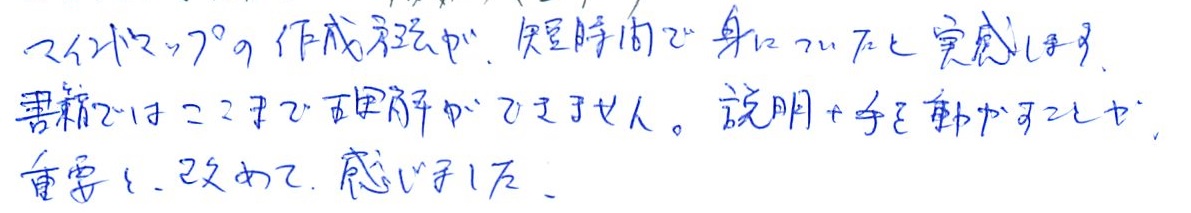 マインドマップの作成方法が、短時間で身についたと実感します、
書籍ではここまで理解ができません。説明+手を動かすことが、
重要と、改めて、感じました、